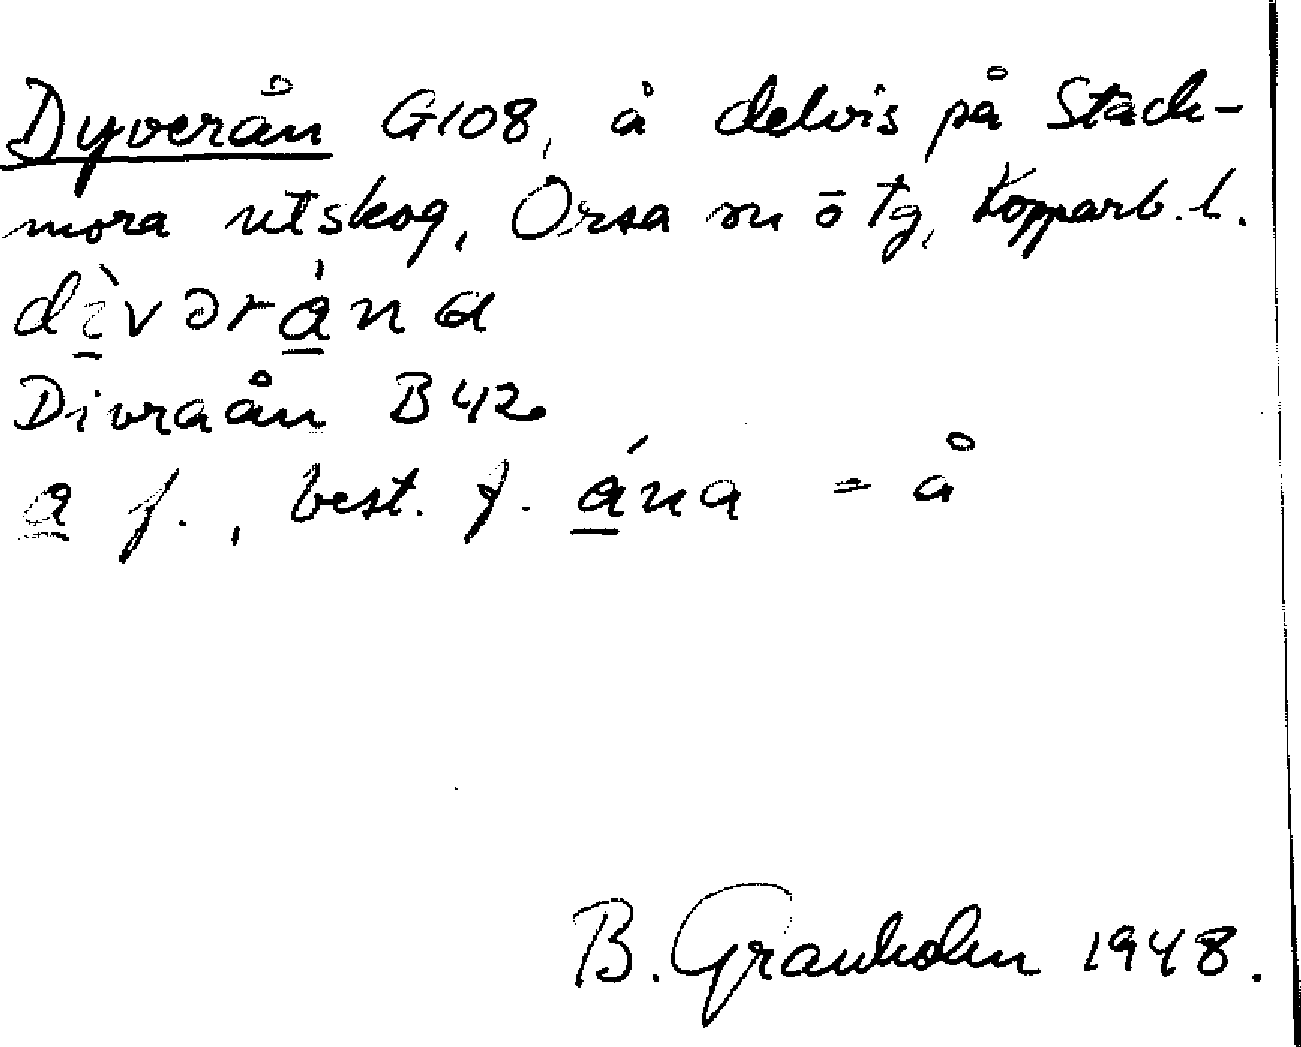 Dyverån G108, å delvis på Stack-
mora utskog, Orsa sn ö tg, Kopparb. l.
dì̠vərá̠na
Divraån B42
a̠ f., best. f. á̠na = å
B. Granholm 1948.